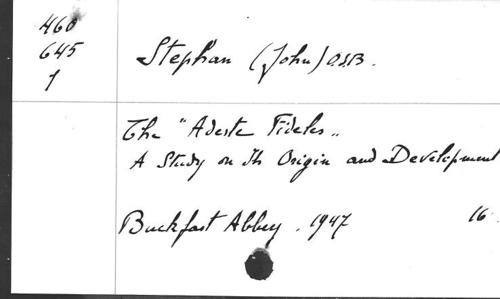 460
645
1
Stephan (John) O.S.B.
The "Adeste Fideles"
A Study on Its Origin and Development
Buckfast Abbey. 1947 16